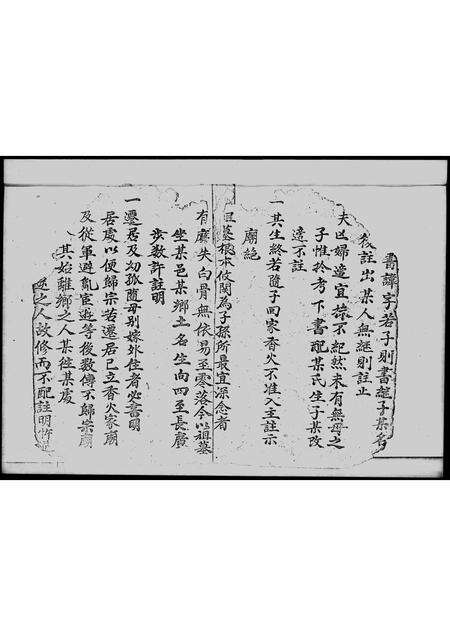 書諱字若子則書繼子某名
於註出某人無繼則註止
夫亡婦適宜抹不紀然未有無母之
子惟於考下書配某氏生子某改
適不註
一其生終若隨子回家香火不准入主註示
廟絶
祖墓根本攸関為子孫所最宜深念者
有縻失白骨無依易至零落今以祖墓
坐某邑某鄉土名生向四至長廣
步数許註明
一遷居及幼孤隨母別嫁外住者必書明
居處以便歸宗若遷居已立香火家廟
及從軍避亂宦遊等後数傳不歸宗廟
其始離鄉之人某徙某處
之人故修而不配註明